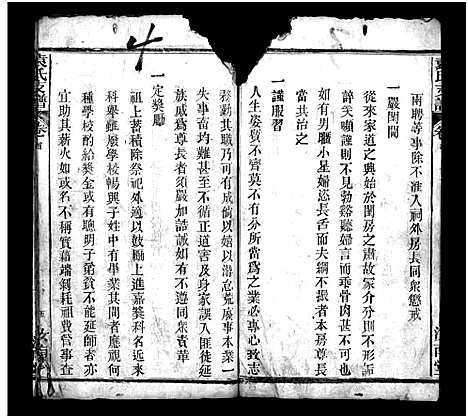 雨聘等事除不准入祠外房長同衆懲戒
一嚴閨閫
從來家道之興始於閨房之肅故冢介斜敵不形謠
誶笑嚬謹則不見勃谿聽婦言而乖骨肉甚不可也
其或有男懸小星婦恣長舌而夫綱不振者本房尊長
當共治之
一謹服習
人生姿質不齊莫不有分所當爲之業必專心致志
務勤其職乃可有成倘以嬉以滑怠荒廢事本業一
失事畜均難甚至不循正道害及身家誤入匪徒延
族戚爲尊長者須嚴加誥誡如有不遵同衆責革
一定獎勵
士子蓄積除祭祀外適以鼓勵上進嘉獎科名近來
科舉雖廢學校暢興子姓中有畢業其間者應視何
種學校酌給獎金或有聰明子弟貧不能延師者亦
宜助其薪火如或名不稱實藉端剝耗祖費管事查
袁氏支譜
卷首
汝南堂